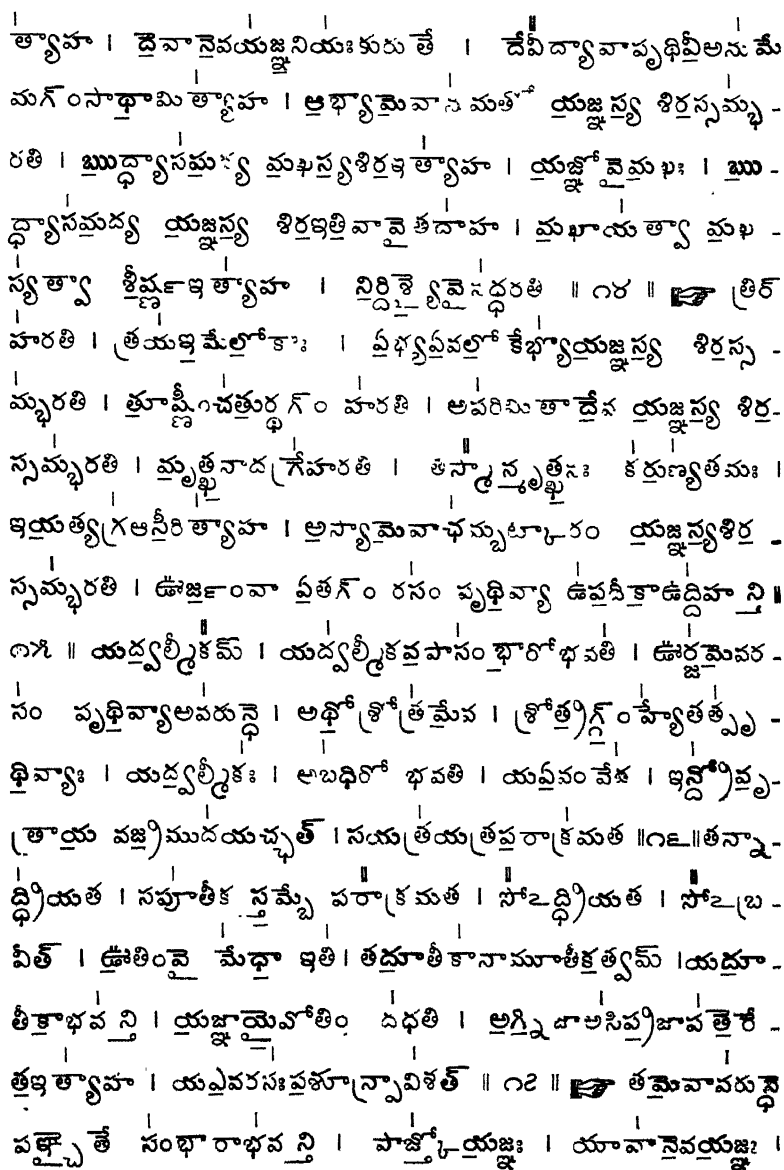 త్యాహ । దైవానేవయజ్ఞనియఃకురుతే । దేవీద్యావాపృథివీఅనుమే
మగ్ంసాథామిత్యాహ । ఆభ్యామేవానుమతో యజ్ఞస్య శిరస్సమ్భ-
రతి । ఋద్ధ్యాసమద్య మఖస్యశిరఇత్యాహ । యజ్ఞోవైమఖః । ఋ-
ద్ధ్యాసమద్య యజ్ఞస్య శిరఇతివావైతదాహ । మఖాయత్వా మఖ-
స్యత్వా శీర్ష్ణఇత్యాహ । నిర్దిశ్యైవైనద్ధరతి ॥ ౧౪ ॥ ☞ త్రిర్
హరతి । త్రయఇమేలోకాః । ఏభ్యఏవలోకేభ్యోయజ్ఞస్య శిరస్స-
మ్భరతి । తూష్ణీంచతుర్థగ్ం హరతి । అపరిమితాదేవ యజ్ఞస్య శిర-
స్సమ్భరతి । మృత్ఖనాదగ్రేహరతి । తస్మాన్మృత్ఖనః కరుణ్యతమః ।
ఇయత్యగ్రఆసీరిత్యాహ । అస్యామేవాఛమ్బట్కారం యజ్ఞస్యశిర-
స్సమ్భరతి । ఊర్జంవా ఏతగ్ం రసం పృథివ్యా ఉపదీకాఉద్దిహన్తి ॥
౧౫ ॥ యద్వల్మీకమ్ । యద్వల్మీకవపాసంభారోభవతి । ఊర్జమేవర-
సం పృథివ్యాఅవరున్ధే । అథోశ్రోత్రమేవ । శ్రోత్రగ్గ్ంహ్యేతత్పృ-
థివ్యాః । యద్వల్మీకః । అబధిరో భవతి । యఏవంవేద । ఇన్ద్రోవృ-
త్రాయ వజ్రముదయచ్ఛత్ । సయత్రయత్రపరాక్రమత ॥౧౬॥తన్నా-
ద్ధ్రియత । సపూతీకస్తమ్బే పరాక్రమత । సోఽద్ధ్రియత । సోఽబ్ర-
వీత్ । ఊతింవై మేధా ఇతి । తదూతీకానామూతీకత్వమ్ ।యదూ-
తీకాభవన్తి । యజ్ఞాయైవోతిం దధతి । అగ్నిజాఅసిప్రజాపతేరే-
తఇత్యాహ । యఏవరసఃపశూన్ప్రావిశత్ ॥ ౧౭ ॥ ☞ తమేవావరున్ధే
పఞ్చైతే సంభారాభవన్తి । పాఙ్క్తోయజ్ఞః । యావానేవయజ్ఞః ।